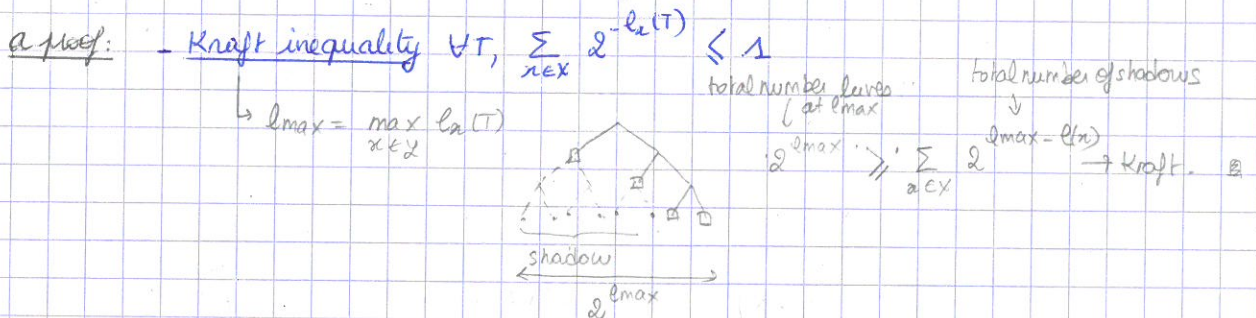 a proof: - Kraft inequality ∀T, ∑_{x∈X} 2^{-l_x(T)} ≤ 1
total number leaves at lmax
total number of shadows
↳ lmax = max_{x∈X} l_x(T)
2^{lmax} ≥ ∑_{x∈X} 2^{lmax - l(x)} → Kraft.
shadow
2^{lmax}